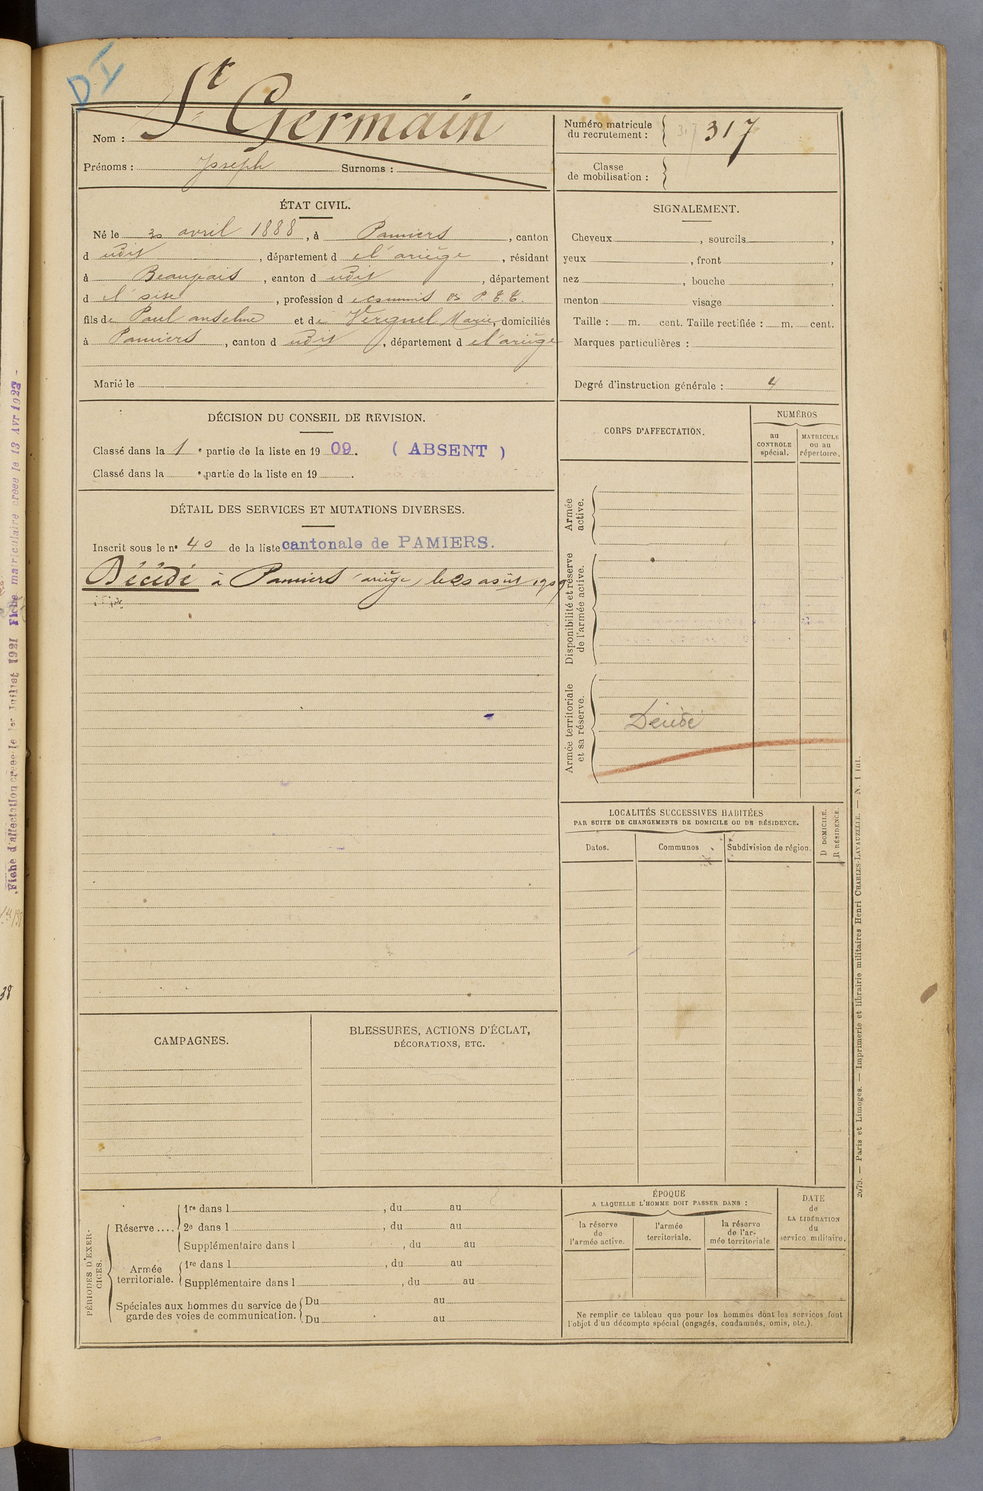 DI
Nom : St Germain
Prénoms : Joseph Surnoms :
Numéro matricule du recrutement : 317 317
Classe de mobilisation :
ÉTAT CIVIL.
Né le avril 1888, à Pamiers, canton
d udit, département d e l'ariège, résidant
à Beauvais, canton d udit, département
d e l'oise, profession d e commis P.T.T.
fils de Paul anselme et de Vergnel Marie, domiciliés
à Pamiers, canton d udit, département d e l'ariège
Marié le
SIGNALEMENT.
Cheveux , sourcils ,
yeux , front ,
nez , bouche ,
menton visage .
Taille : m. cent. Taille rectifiée : m. cent.
Marques particulières :
Degré d'instruction générale : 4
DÉCISION DU CONSEIL DE REVISION.
Classé dans la 1e partie de la liste en 19 09. ( ABSENT )
Classé dans la e partie de la liste en 19 .
DÉTAIL DES SERVICES ET MUTATIONS DIVERSES.
Inscrit sous le n° 40 de la liste cantonale de PAMIERS.
Décédé à Pamiers ariège, le août 1909
CORPS D'AFFECTATION.
NUMÉROS
au CONTROLE spécial.
MATRICULE ou au répertoire.
Armée active.
Disponibilité et réserve de l'armée active.
Armée territoriale et sa réserve.
Décédé
LOCALITÉS SUCCESSIVES HABITÉES
PAR SUITE DE CHANGEMENTS DE DOMICILE OU DE RÉSIDENCE.
Dates. Communes. Subdivision de région. D DOMICILE. R RÉSIDENCE.
CAMPAGNES.
BLESSURES, ACTIONS D'ÉCLAT,
DÉCORATIONS, ETC.
PÉRIODES D'EXERCICES.
Réserve ....
1re dans l , du au
2e dans l , du au
Supplémentaire dans l , du au
Armée territoriale.
1re dans l , du au
Supplémentaire dans l , du au
Spéciales aux hommes du service de garde des voies de communication.
Du au
Du au
ÉPOQUE
A LAQUELLE L'HOMME DOIT PASSER DANS :
la réserve de l'armée active.
l'armée territoriale.
la réserve de l'armée territoriale
DATE de LA LIBÉRATION du service militaire.
Ne remplir ce tableau que pour les hommes dont les services font
l'objet d'un décompte spécial (engagés, condamnés, omis, etc.).
2079. — Paris et Limoges. — Imprimerie et librairie militaires Henri CHARLES-LAVAUZELLE. — N. 1 int.
Fiche d'affectation creee le 1er Juillet 1921 Fiche matriculaire creee le 13 Avr 1923 -
38